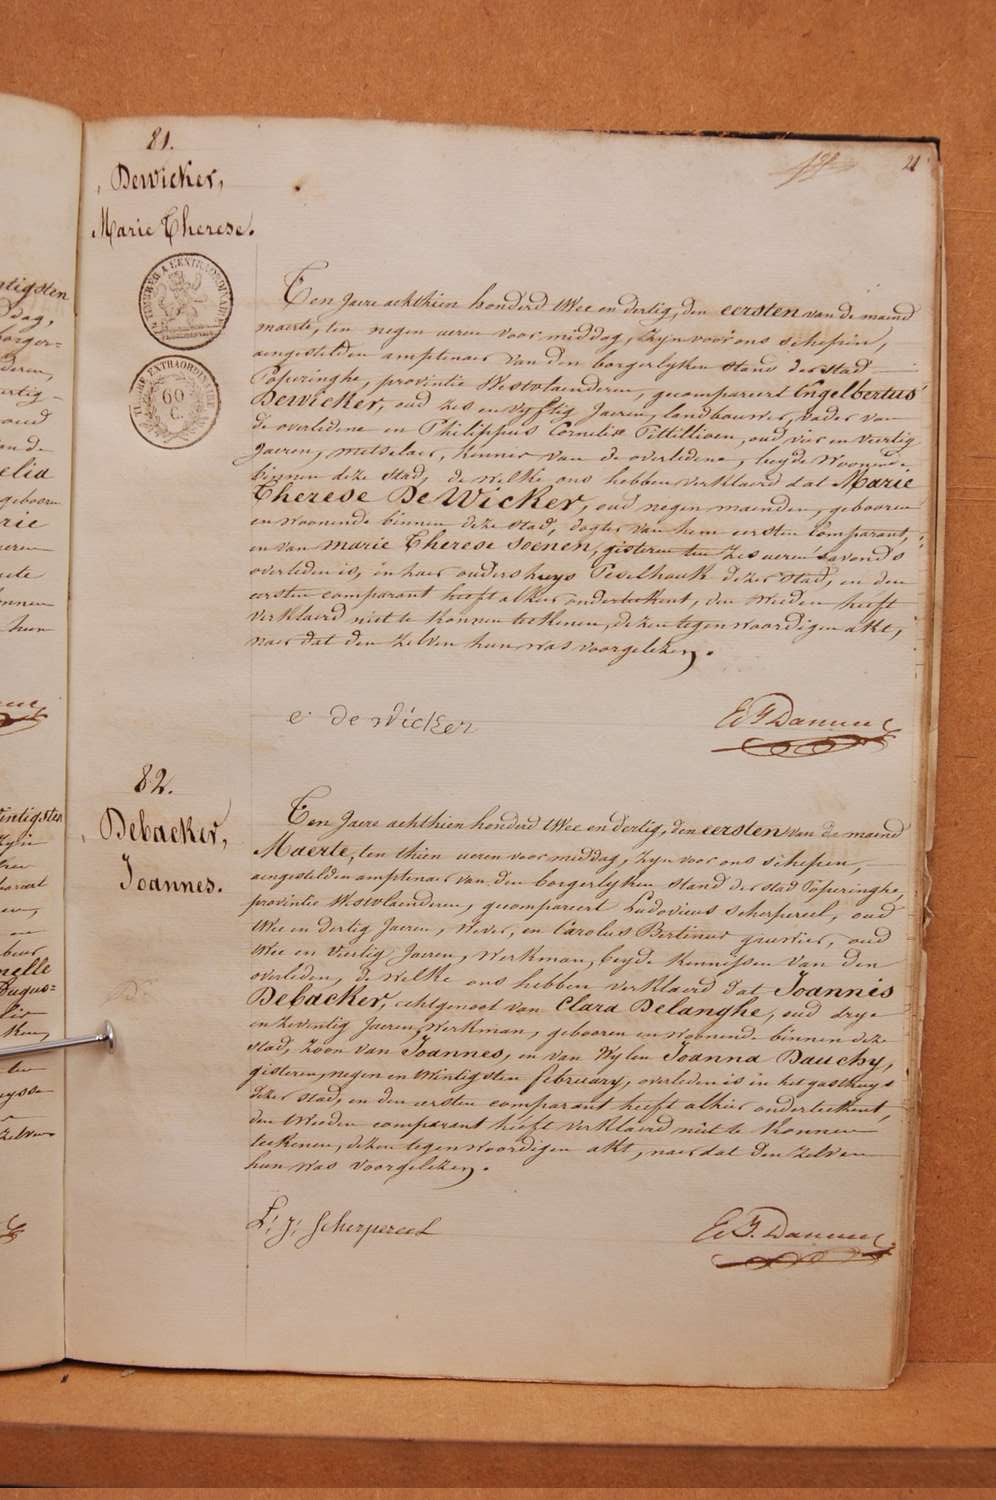 21
81.
Dewicker,
Marie Therese.
TIMBRE EXTRAORDINAIRE
60
C.
Ten Jaere achthien honderd twee en dertig, den eersten van de maend
maerte, ten negen ueren voor middag, zyn voor ons schepen,
aengestelden amptenaer van den borgerlyken stand der stad
Poperinghe, provintie Westvlaenderen, gecompareert Engelbertus
Dewicker, oud zes en vyftig Jaeren, landbouwer, vader van
de overledene en Philippus Cornelis oud vier en veertig
Jaeren, metselaer, kenner van de overledene, beyde woonende
binnen deze stad, de welke ons hebben verklaerd dat Marie
Therese De Wicker, oud negen maenden, gebooren
en woonende binnen deze stad, dogter van hem eersten Comparant,
en van Marie Therese Soenen, gisteren ten zes ueren s'avonds
overleden is, in haer ouders huys Peselhouk dezer stad, en den
eersten comparant heeft alhier onderteekent, den tweeden heeft
verklaerd niet te konnen teekenen, dezen tegenwoordigen akt,
naer dat den zelven hun was voorgelezen.
e de wicker
82.
Debacker,
Joannes.
Ten Jaere achthien honderd twee en dertig, den eersten van de maend
Maerte, ten thien ueren voor middag, zyn voor ons schepen,
aengestelden amptenaer van den borgerlyken stand der stad Poperinghe,
provintie Westvlaenderen, gecompareert Ludovicus Scherpereel, oud
twee en dertig Jaeren, wever, en Carolus Bertinus oud
twee en veertig Jaeren, werkman, beyde kennissen van den
overleden, de welke ons hebben verklaerd dat Joannes
Debacker, echtgenoot van Clara Delanghe, oud drye
en zeventig Jaeren, werkman, gebooren en woonende binnen deze
stad, zoon van Joannes, en van wylen Joanna Dauchy,
gisteren, negen en twintigsten february, overleden is in het gasthuys
dezer stad, en den eersten comparant heeft alhier onderteekent,
den tweeden comparant heeft verklaerd niet te konnen
teekenen, dezen tegenwoordigen akt, naer dat den zelven
hun was voorgelezen.
L: J: Scherpereel